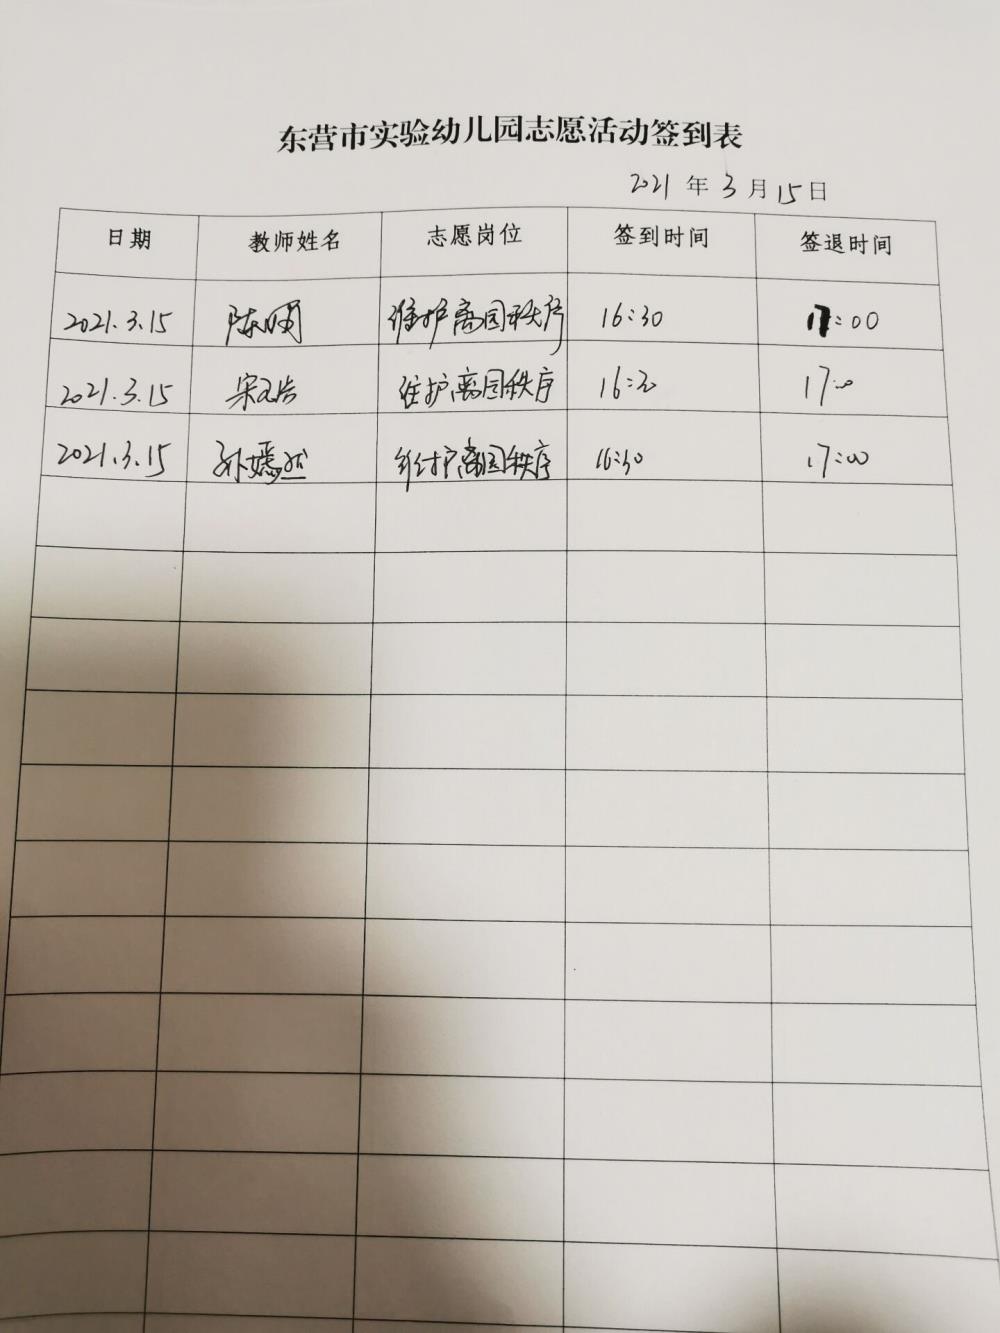 东营市实验幼儿园志愿活动签到表
2021 年 3 月 15 日
日期 教师姓名 志愿岗位 签到时间 签退时间
2021.3.15 陈 维护离园秩序 16:30 17:00
2021.3.15 宋 维护离园秩序 16:30 17:00
2021.3.15 孙嫣然 维护离园秩序 16:30 17:00